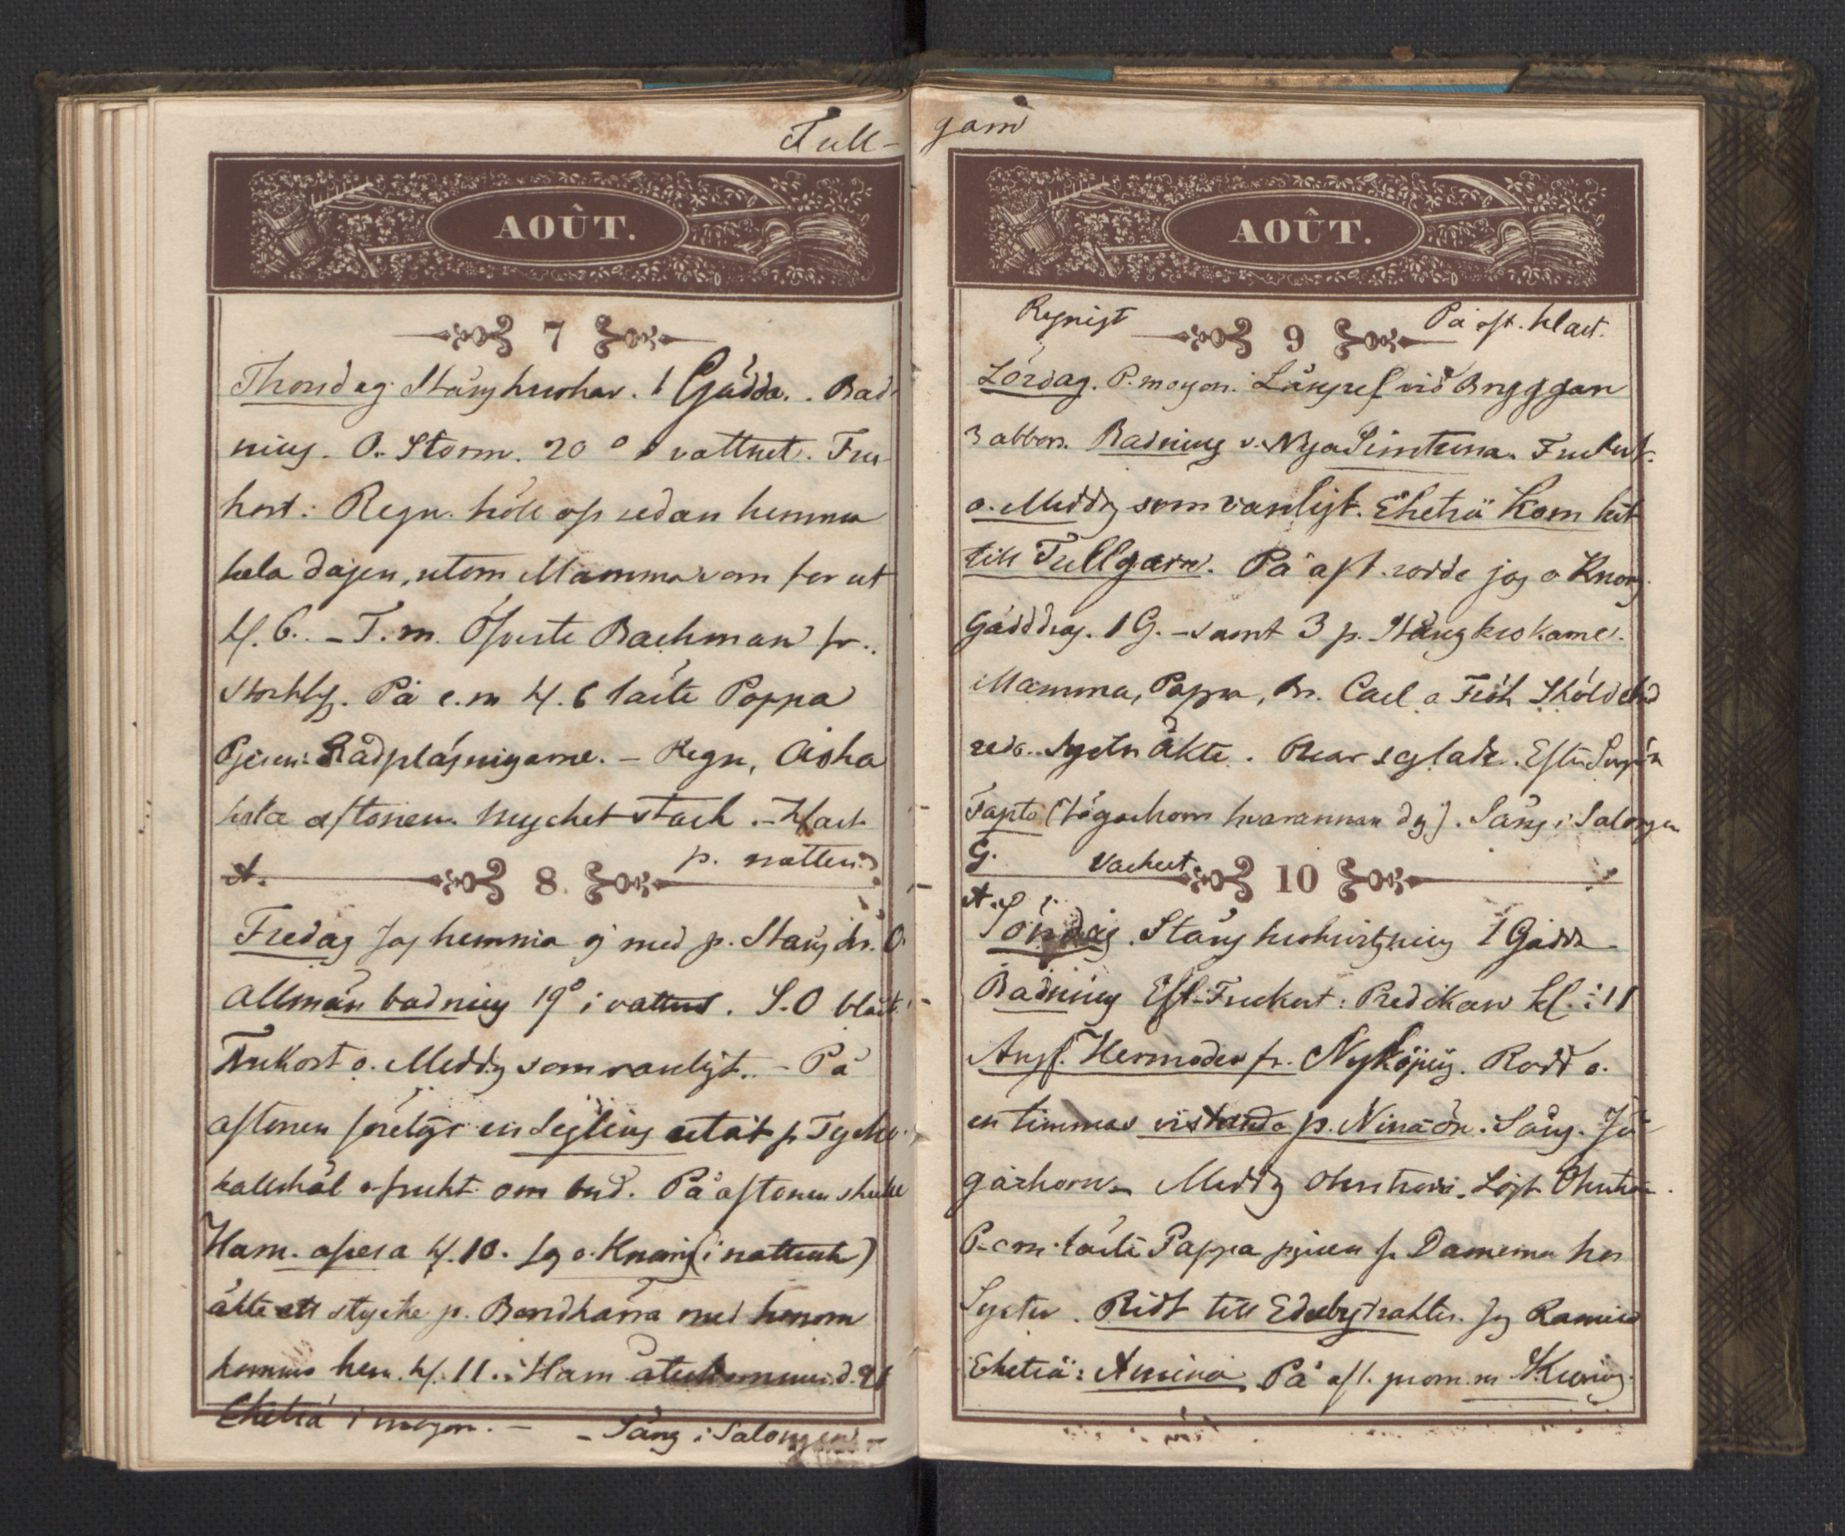 Tull-
AOÛT.
7
Thorsdag. Stångkrokar. 1 Gädda. Bad-
ning. O. Storm. 20° i vattnet. Fru-
kost: Regn. höll op sedan hemma
hela dagen, utom Mamma som for ut
kl. 6. – T. m. Öfverste Bachman fr.
Stockh. På e.m kl. 6 läste Pappa
Pjesen: Rådplägningarne. – Regn, Åska
hela aftonen. Mycket stark. – Klart
p. natten.
A.
8
Fredag Jag hemma ej med p. Stångkr. O.
Allmän badning 19° i vattnet. S.O blåst
Frukost o. Middg som vanligt. – På
aftonen företogs en Segling utåt
hållshål frukt om bord. På aftonen skulle
Ham. opera kl. 10. Jag o. Knorring (i nattrock)
åkte ett stycke p. Bondkärra med honom
hem. kl. 11. Ham återkommer d. 21
Eketrä i morgon. – – Sång i Salongen –
garn
AOÛT.
Regnigt
9
På aft. klart.
Lördag. P. morgon. Långref vid Bryggan
3 abbor. Badning v. Nya Simtrina. Frukost.
o. Middg som vanligt. Eketrä kom hit
till Tullgarn. På aft. rodde jag o Knorg.
Gäddrag. 1 G. – samt 3 p. Stångkrokarne.
Mamma, Pappa, Br. Carl o Frök Sköldebrand
Syster åkte. Oscar seglade. Eft. Supén
Tapto (Jägarhorn hvarannan dag). Sång i Salongen
G.
Vackert.
10
A.
Söndag. Stångkrokvittjning 1 Gädda
Badning Eft. Frukost: Predikan kl. 11
Angf. Hermoder fr. Nyköping. Rodd o.
en timmas vistande p. Ninaön. Sång. Jä-
garhorn – Middg Löjt
P. em. läste Pappa pjesen f. Damerna hos
Syster. Ridt till Edebytrakten. Jag Ramiro
Eketrä: Amina På aft. prom. m Knorrig.